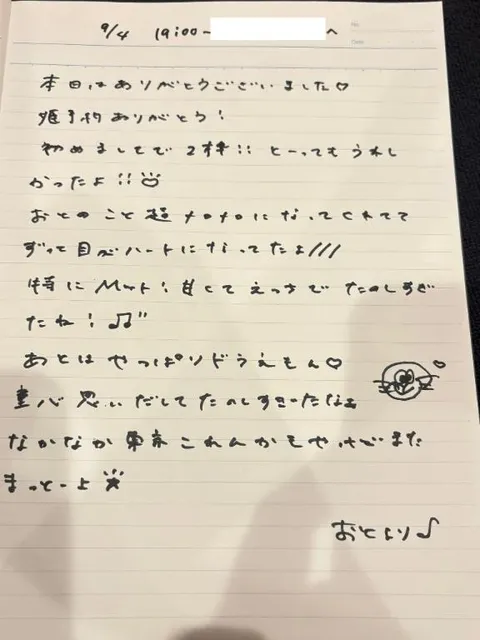 9/4 19:00~ へ
No.
Date
本日はありがとうございました♡
姫予約ありがとう!
初めましてで2枠!! とーってもうれし
かったよ!!
おとのこと超メロメロになってくれてて
ずっと目がハートになってたよ///
特にMット! 甘くてえっちで たのしすぎ
たね! ♫"
あとは やっぱりドラえもん♡
童心 思いだしてたのしすぎたなぁ
なかなか東京これんかもやけどまた
まっとーよ
おとより♪